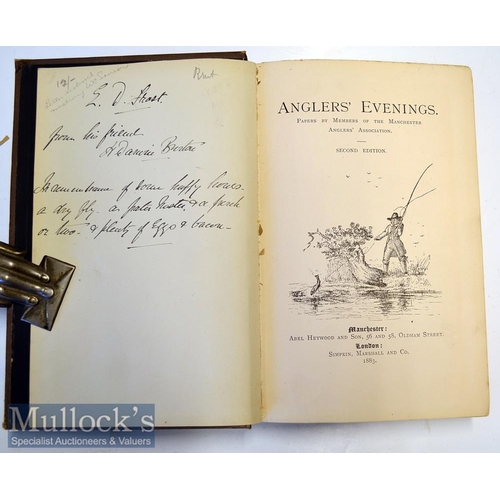 12/-
E. D. Frost.
from his friend
In remembrance of some happy hours
a dry fly. a & a perch
or two. & plenty of Eggs & bacon—
ANGLERS' EVENINGS.
PAPERS BY MEMBERS OF THE MANCHESTER
ANGLERS' ASSOCIATION.
SECOND EDITION.
Manchester:
ABEL HEYWOOD AND SON, 56 AND 58, OLDHAM STREET.
London:
SIMPKIN, MARSHALL AND CO.
1883.
MULLOCK'S
Specialist Auctioneers & Valuers